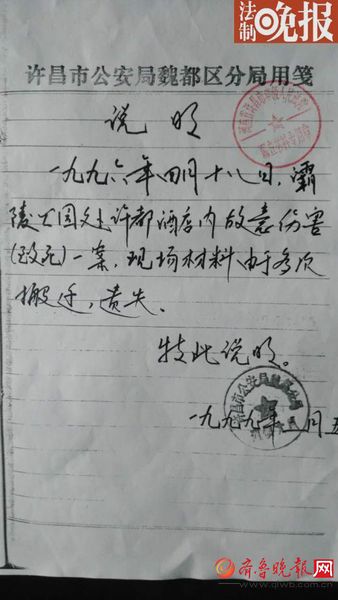 法制晚报
许昌市公安局魏都区分局用笺
说明
一九九六年四月十八日,灞
陵公园处许都酒店内故意伤害
(致死)一案,现场材料由于多次
搬迁,遗失。
特此说明。
许昌市公安局魏都分局
一九九九年 月五
齐鲁晚报网
www.qlwb.com.cn